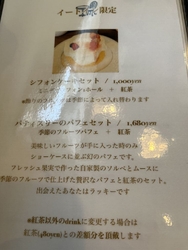 イート 限定
シフォンケーキセット / 1,000yen
シフォンケーキ1ホール + 紅茶
※飾りのフルーツは季節によって入れ替わります
パティスリーのパフェセット / 1,680yen
季節のフルーツパフェ + 紅茶
美味しいフルーツが手に入った時のみ
ショーケースに並ぶ幻のパフェです。
フレッシュ果実で作った自家製のソルベとムースに
季節のフルーツで仕上げた贅沢なパフェと紅茶のセット。
出会えたあなたはラッキーです
※紅茶以外のdrinkに変更する場合は
紅茶(480yen)との差額分を頂戴します。